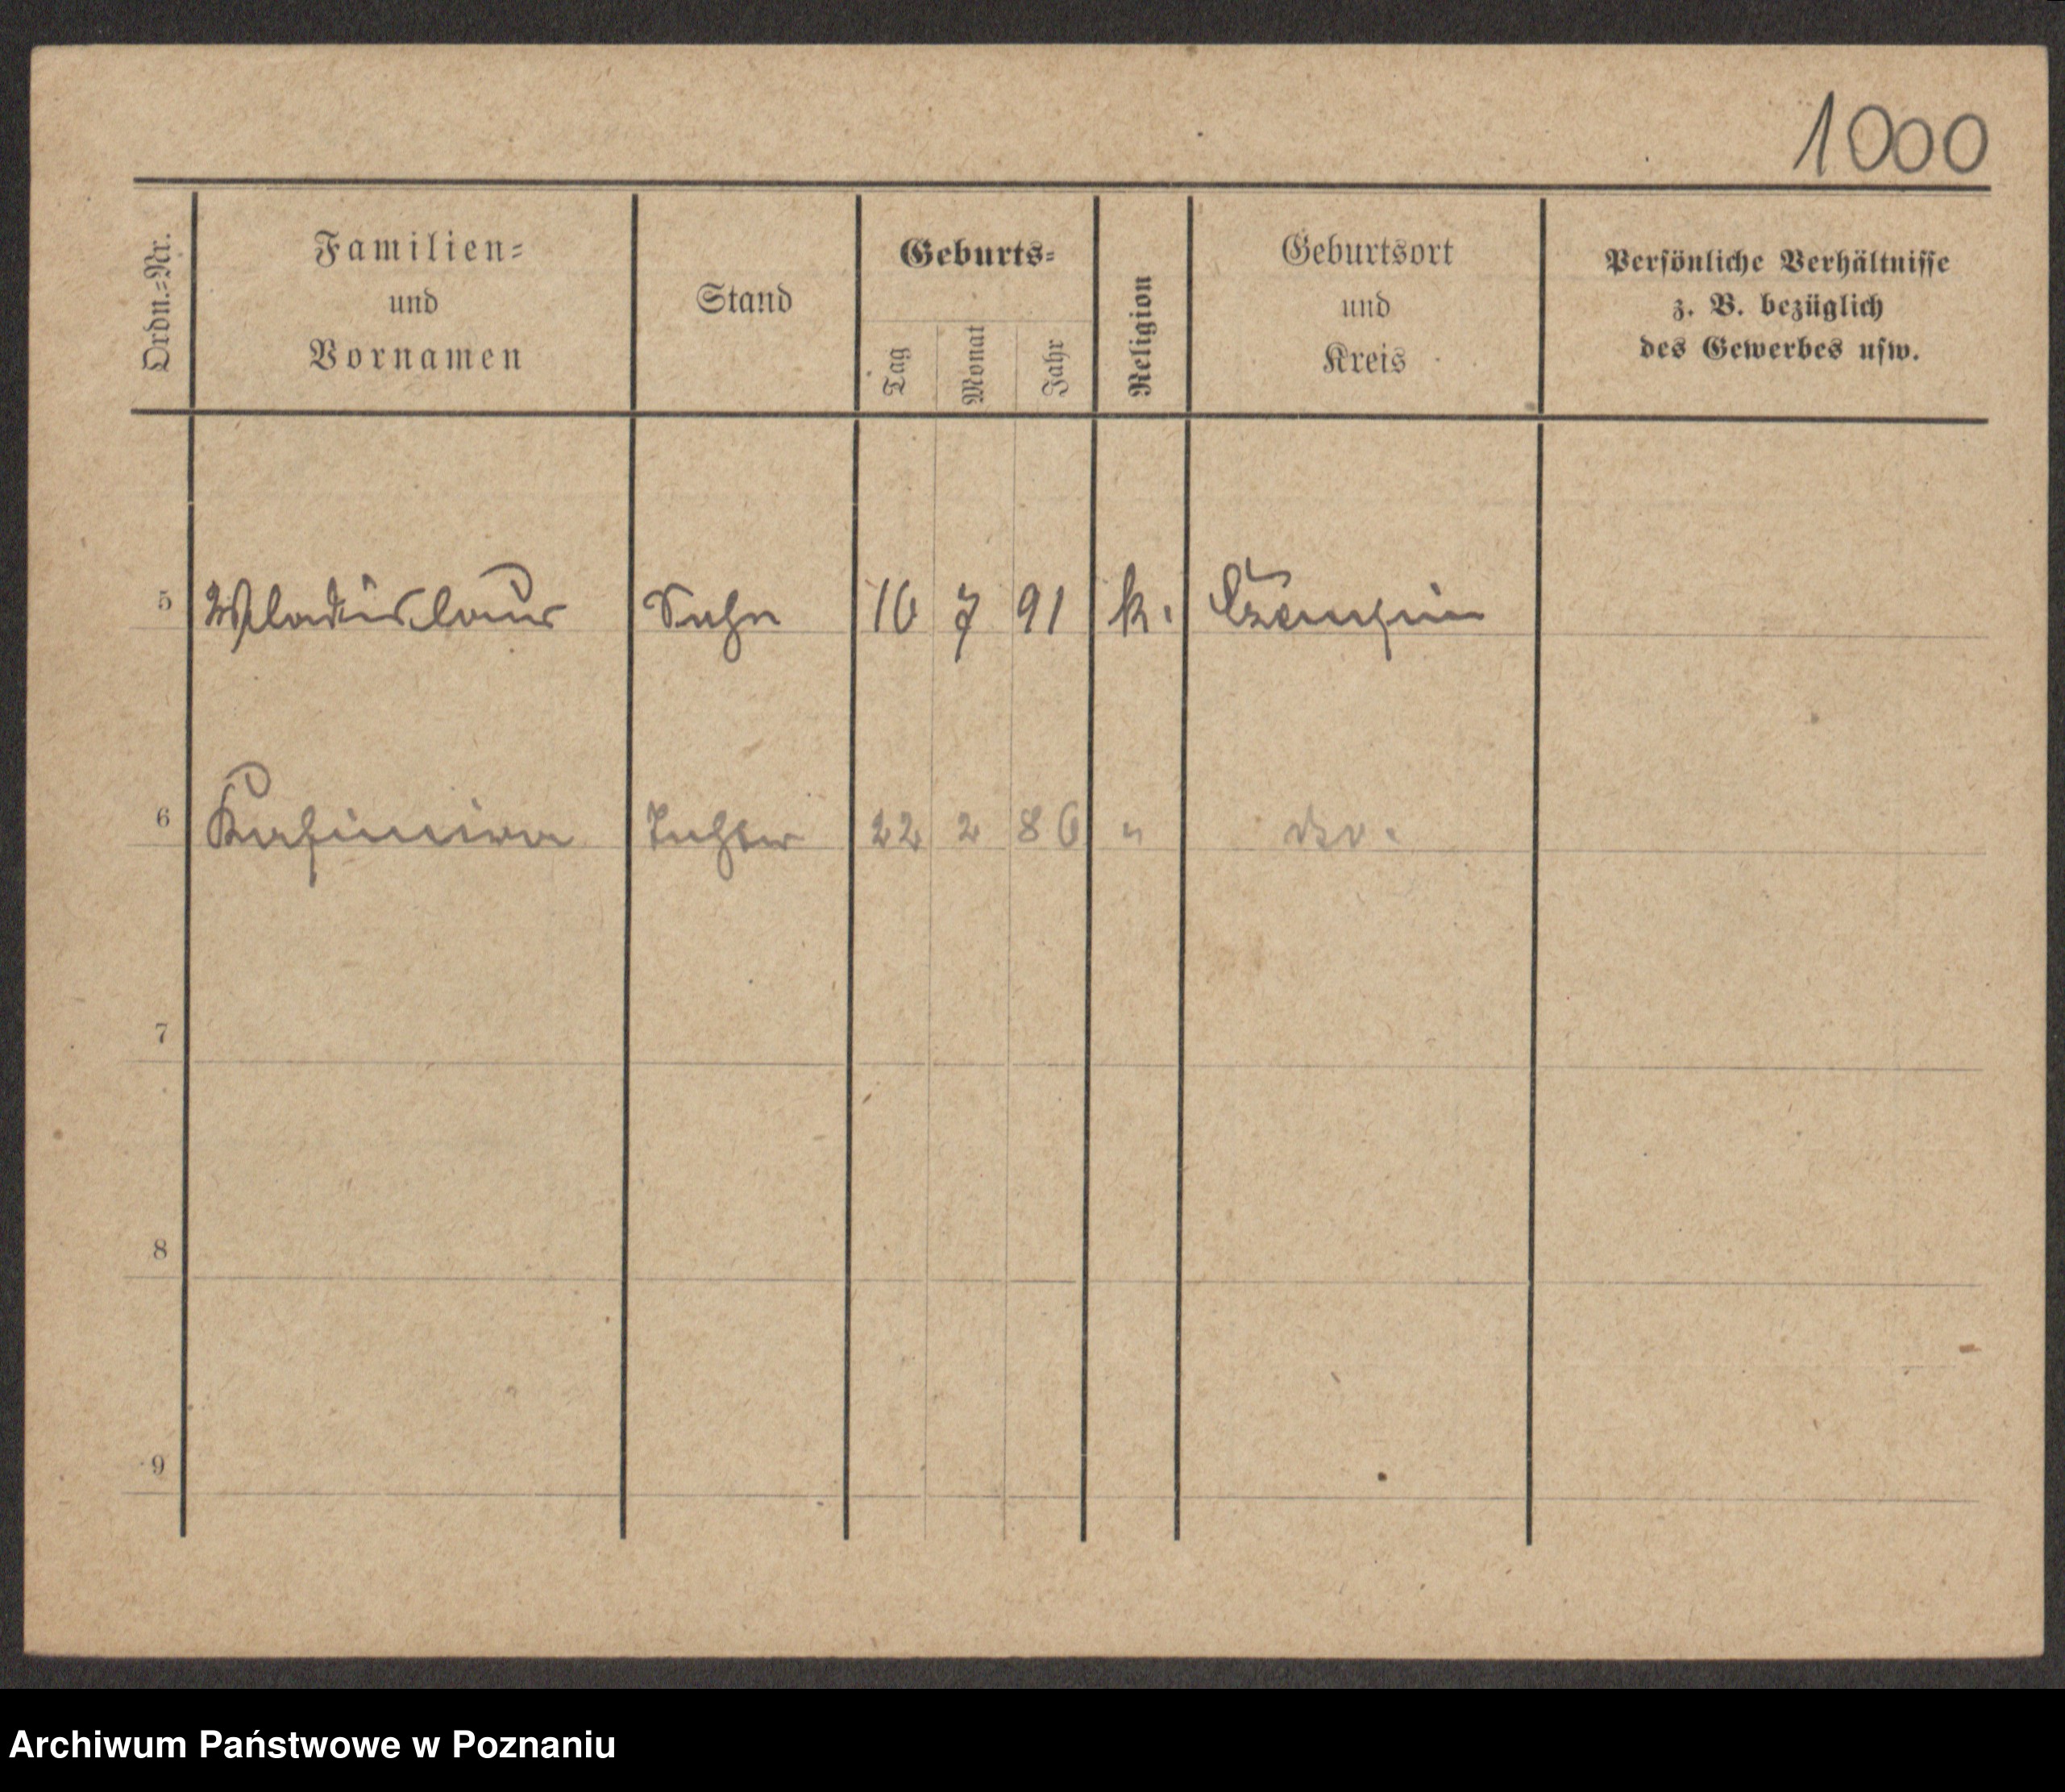 1000
Ordn.-Nr.
Familien-
und
Vornamen
Stand
Geburts-
Tag
Monat
Jahr
Religion
Geburtsort
und
Kreis
Persönliche Verhältnisse
z. B. bezüglich
des Gewerbes usw.
5 Wladislaus Sohn 16 7 91 k. Czempin
6 Kasimira Tochter 22 2 86 " do.
7
8
9
Archiwum Państwowe w Poznaniu